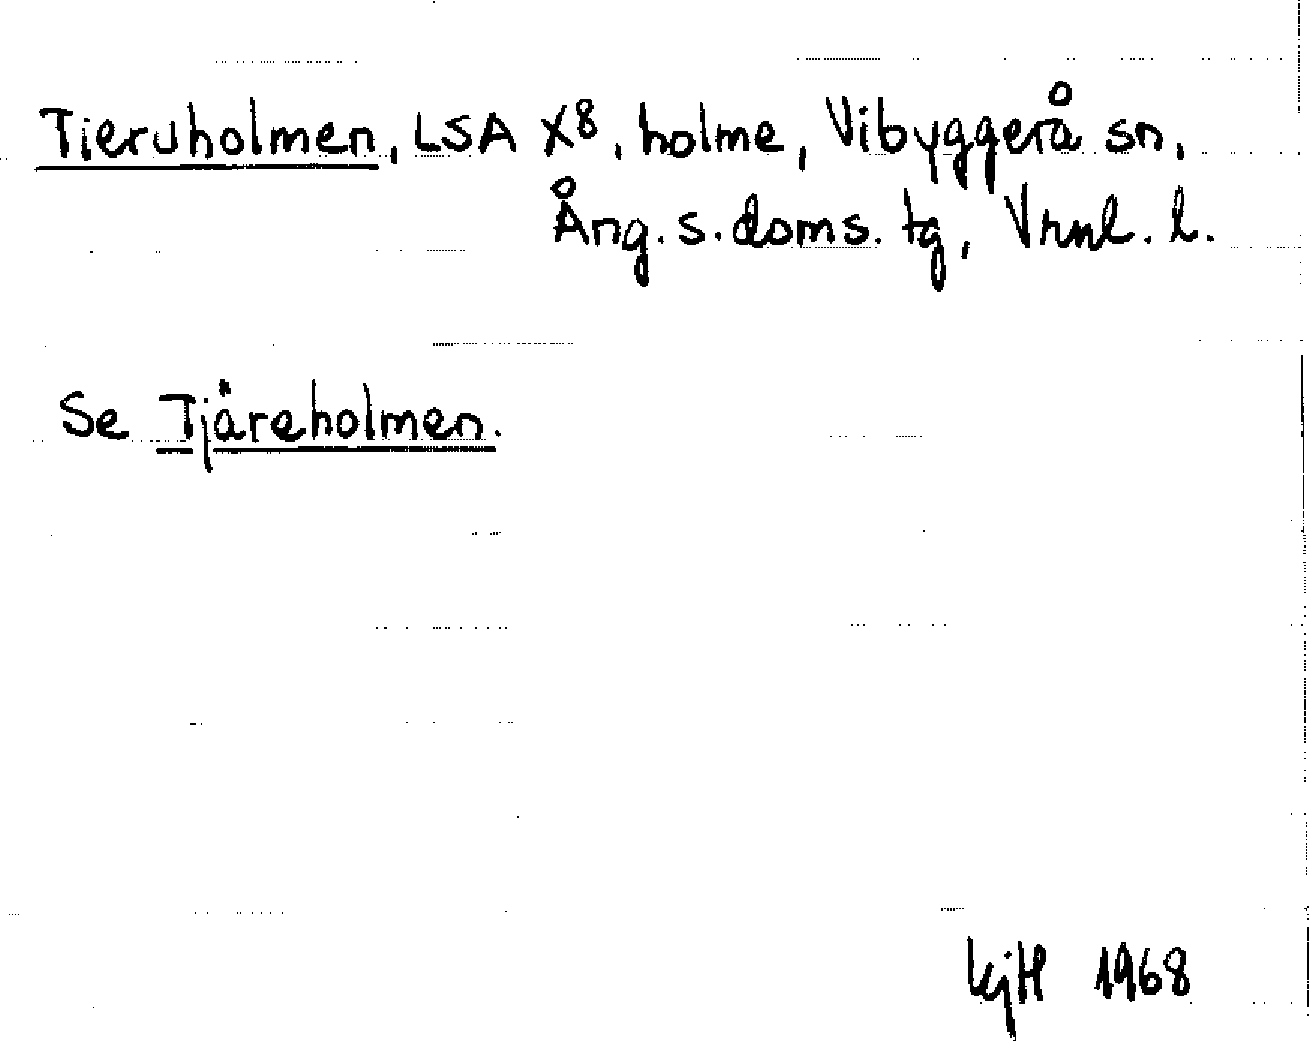 Tieruholmen, LSA X8, holme, Vibyggerå sn,
Ång. s. doms. tg, Vrnl. l.
Se Tjäreholmen.
KjH 1968